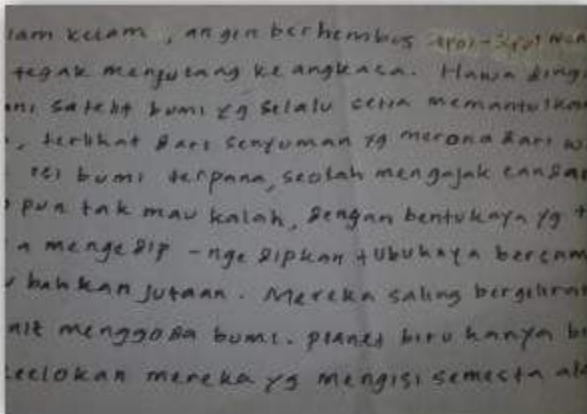 lam kelam, angin berhembus sepoi-sepoi
tegak menjulang ke angkasa. Hawa ding
ni satelit bumi yg selalu setia memantulka
, terlihat dari senyuman yg merona dari w
isi bumi terpana, seolah mengajak
pun tak mau kalah, dengan bentuknya yg t
a mengedip-ngedipkan tubuhnya bercam
bahkan jutaan. Mereka saling
nit menggoda bumi. planet biru hanya b
eelokan mereka yg mengisi semesta ala